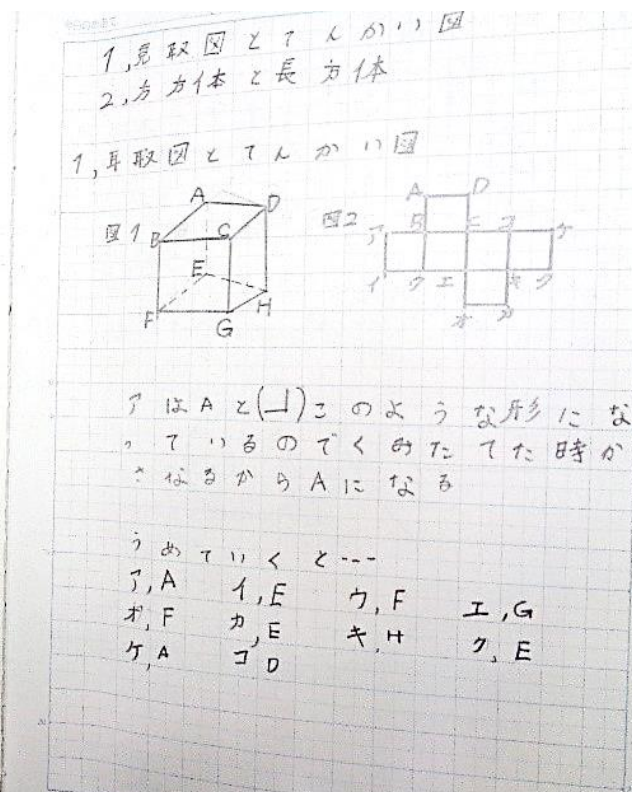 1,見取図とてんかい図
2,方方体と長方体
1,耳取図とてんかい図
図1
A
D
B
C
E
F
H
G
図2
A
D
ア
B
C
コ
ケ
イ
ウ
エ
キ
ク
オ
カ
アはAと(┘)このような形にな
っているのでくみたてた時か
さなるからAになる
うめていくと---
ア,A イ,E ウ,F エ,G
オ,F カ,E キ,H ク,E
ケ,A コ,D